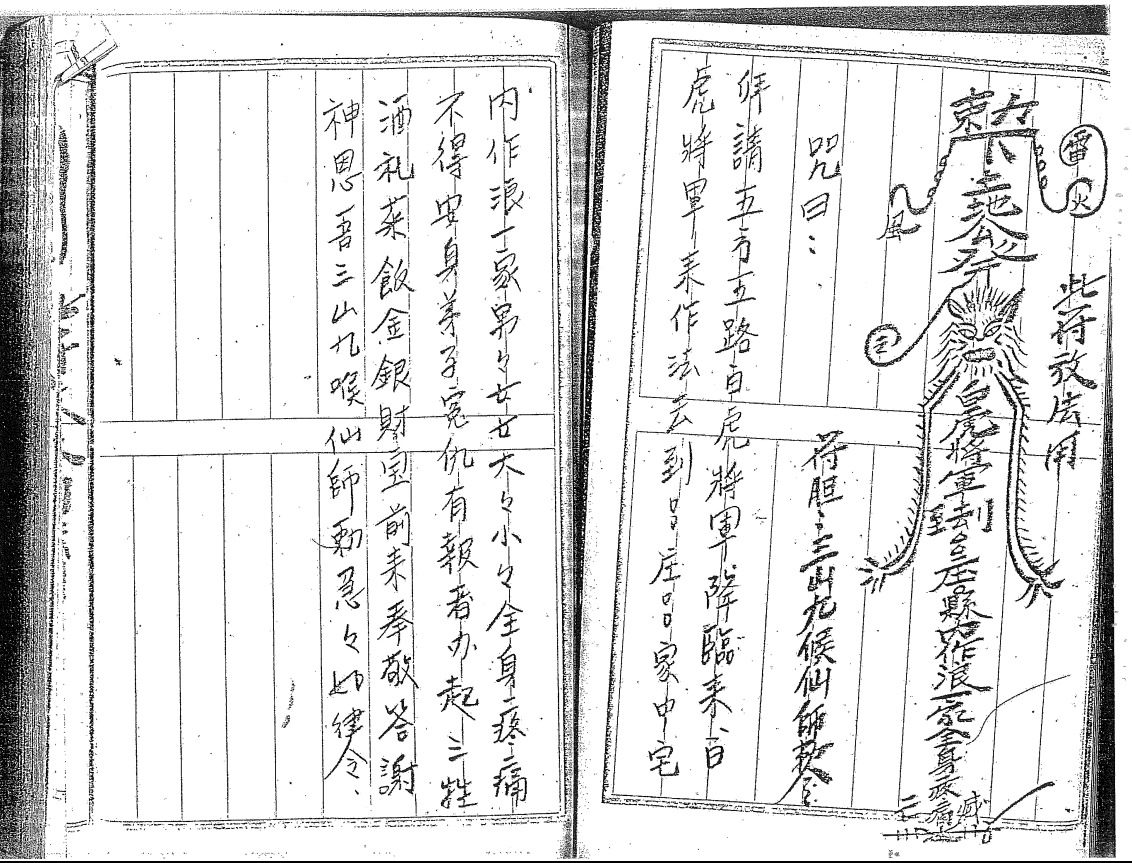 此符放法用
雷火
風
白虎將軍到
符胆：三山九候仙師敕令
咒曰：
拜請五方五路白虎將軍降臨來白
虎將軍來作法去到○○庄○○家中宅
內作浪一家男々女女大々小々全身疼痛
不得安身弟子冤仇有報者办起三牲
酒礼菜飯金銀財宝前來奉敬答謝
神恩吾三山九喉仙師勅急々如律令